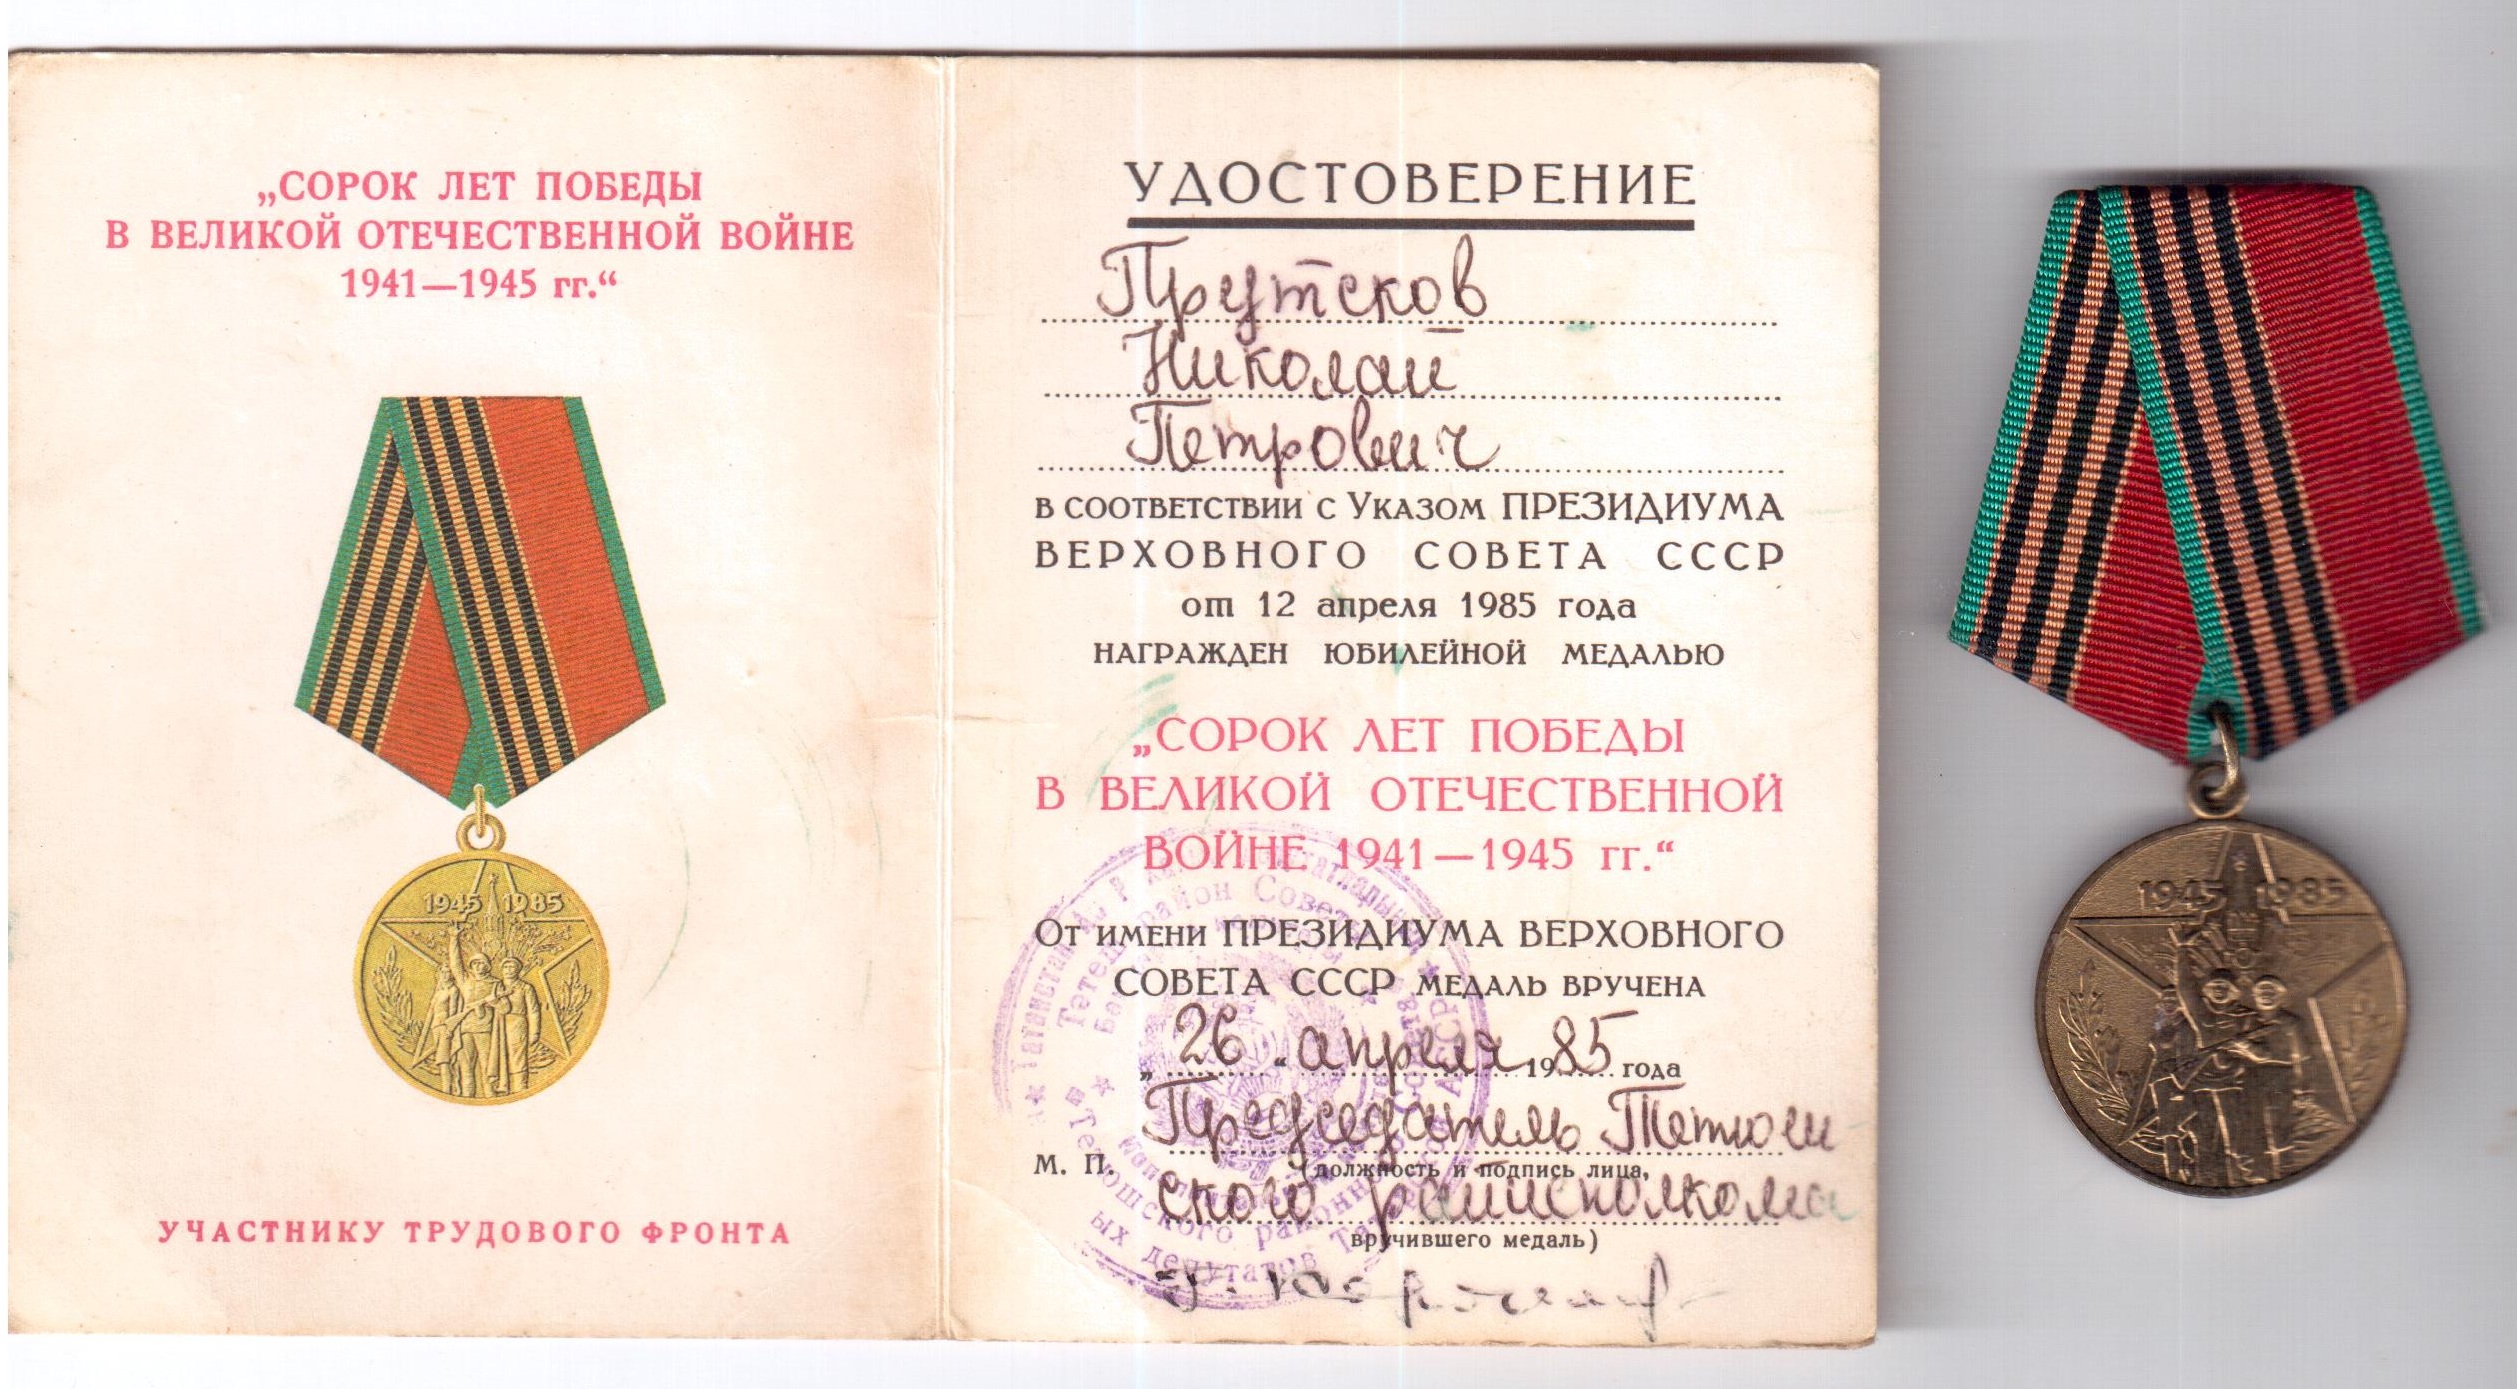 „СОРОК ЛЕТ ПОБЕДЫ
В ВЕЛИКОЙ ОТЕЧЕСТВЕННОЙ ВОЙНЕ
1941—1945 гг.“
1945 1985
УЧАСТНИКУ ТРУДОВОГО ФРОНТА
УДОСТОВЕРЕНИЕ
Прутсков
Николай
Петрович
В СООТВЕТСТВИИ С УКАЗОМ ПРЕЗИДИУМА
ВЕРХОВНОГО СОВЕТА СССР
от 12 апреля 1985 года
НАГРАЖДЕН ЮБИЛЕЙНОЙ МЕДАЛЬЮ
„СОРОК ЛЕТ ПОБЕДЫ
В ВЕЛИКОЙ ОТЕЧЕСТВЕННОЙ
ВОЙНЕ 1941—1945 гг.“
ОТ ИМЕНИ ПРЕЗИДИУМА ВЕРХОВНОГО
СОВЕТА СССР МЕДАЛЬ ВРУЧЕНА
„26“ апреля 1985 года
Председатель Тетюш
М. П. (должность и подпись лица,
ского райисполкома
вручившего медаль)
1945 1985